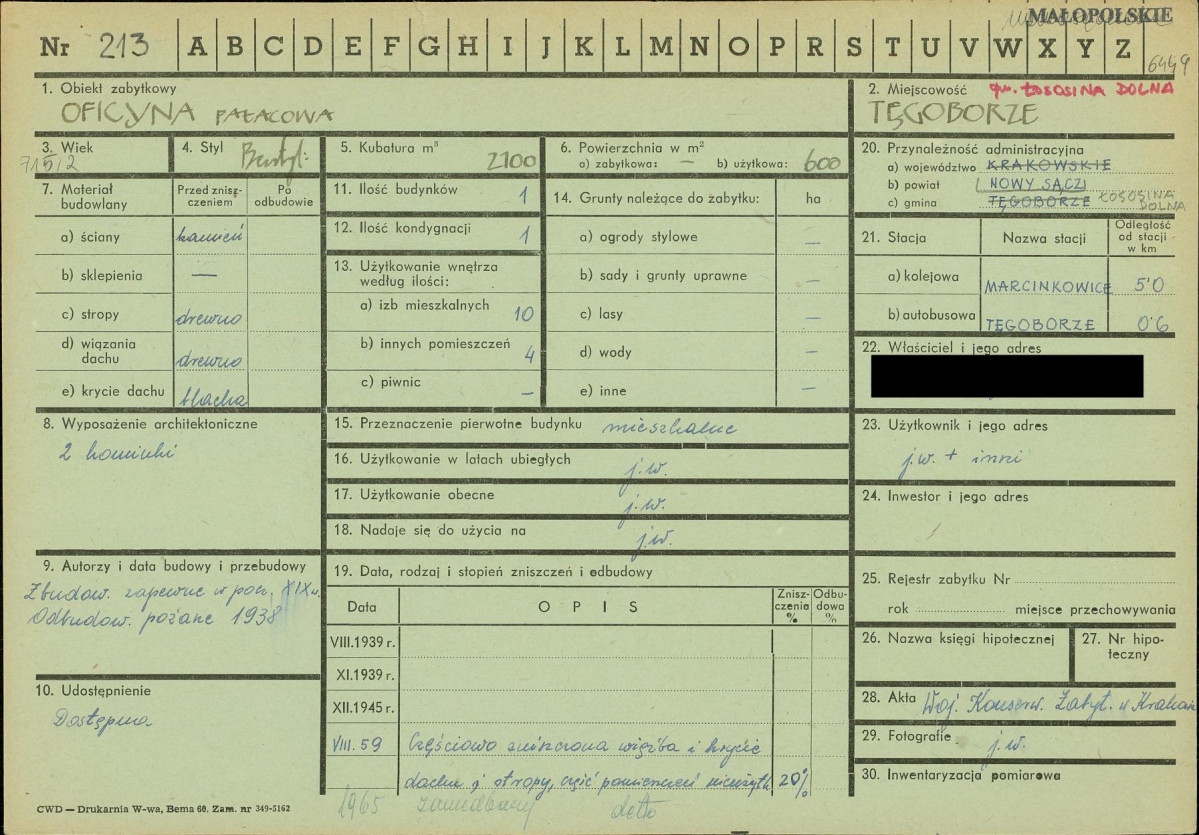 MAŁOPOLSKIE
Nr 213 A B C D E F G H I J K L M N O P R S T U V W X Y Z
6449
1. Obiekt zabytkowy
OFICYNA PAŁACOWA
2. Miejscowość gm. ŁOSOSINA DOLNA
TĘGOBORZE
3. Wiek
715/2
4. Styl Bezstyl.
5. Kubatura m³ 2100
6. Powierzchnia w m²
a) zabytkowa: — b) użytkowa: 600
7. Materiał budowlany
Przed zniszczeniem
Po odbudowie
a) ściany kamień
b) sklepienia —
c) stropy drewno
d) wiązania dachu drewno
e) krycie dachu blacha
8. Wyposażenie architektoniczne
2 kominki
9. Autorzy i data budowy i przebudowy
Zbudow. zapewne w pocz. XIX w.
Odbudow. po pożarze 1938
10. Udostępnienie
Dostępna
11. Ilość budynków 1
12. Ilość kondygnacji 1
13. Użytkowanie wnętrza według ilości:
a) izb mieszkalnych 10
b) innych pomieszczeń 4
c) piwnic —
14. Grunty należące do zabytku: ha
a) ogrody stylowe —
b) sady i grunty uprawne —
c) lasy —
d) wody —
e) inne —
15. Przeznaczenie pierwotne budynku mieszkalne
16. Użytkowanie w latach ubiegłych j.w.
17. Użytkowanie obecne j.w.
18. Nadaje się do użycia na j.w.
19. Data, rodzaj i stopień zniszczeń i odbudowy
Data OPIS Zniszczenia % Odbudowa %
VIII.1939 r.
XI.1939 r.
XII.1945 r.
VIII.59 Częściowo zniszczona więźba i krycie
dachu i stropy, część pomieszczeń nieużytk 20%
1965 zaniedbany detto
20. Przynależność administracyjna
a) województwo KRAKOWSKIE
b) powiat NOWY SĄCZ
c) gmina TĘGOBORZE ŁOSOSINA DOLNA
21. Stacja
Nazwa stacji
Odległość od stacji w km
a) kolejowa MARCINKOWICE 5'0
b) autobusowa TĘGOBORZE 0'6
22. Właściciel i jego adres
23. Użytkownik i jego adres
j.w. + inni
24. Inwestor i jego adres
25. Rejestr zabytku Nr
rok miejsce przechowywania
26. Nazwa księgi hipotecznej
27. Nr hipoteczny
28. Akta Woj. Konserw. Zabyt. w Krakowie
29. Fotografie j.w.
30. Inwentaryzacja pomiarowa
CWD — Drukarnia W-wa, Bema 60. Zam. nr 349-5162